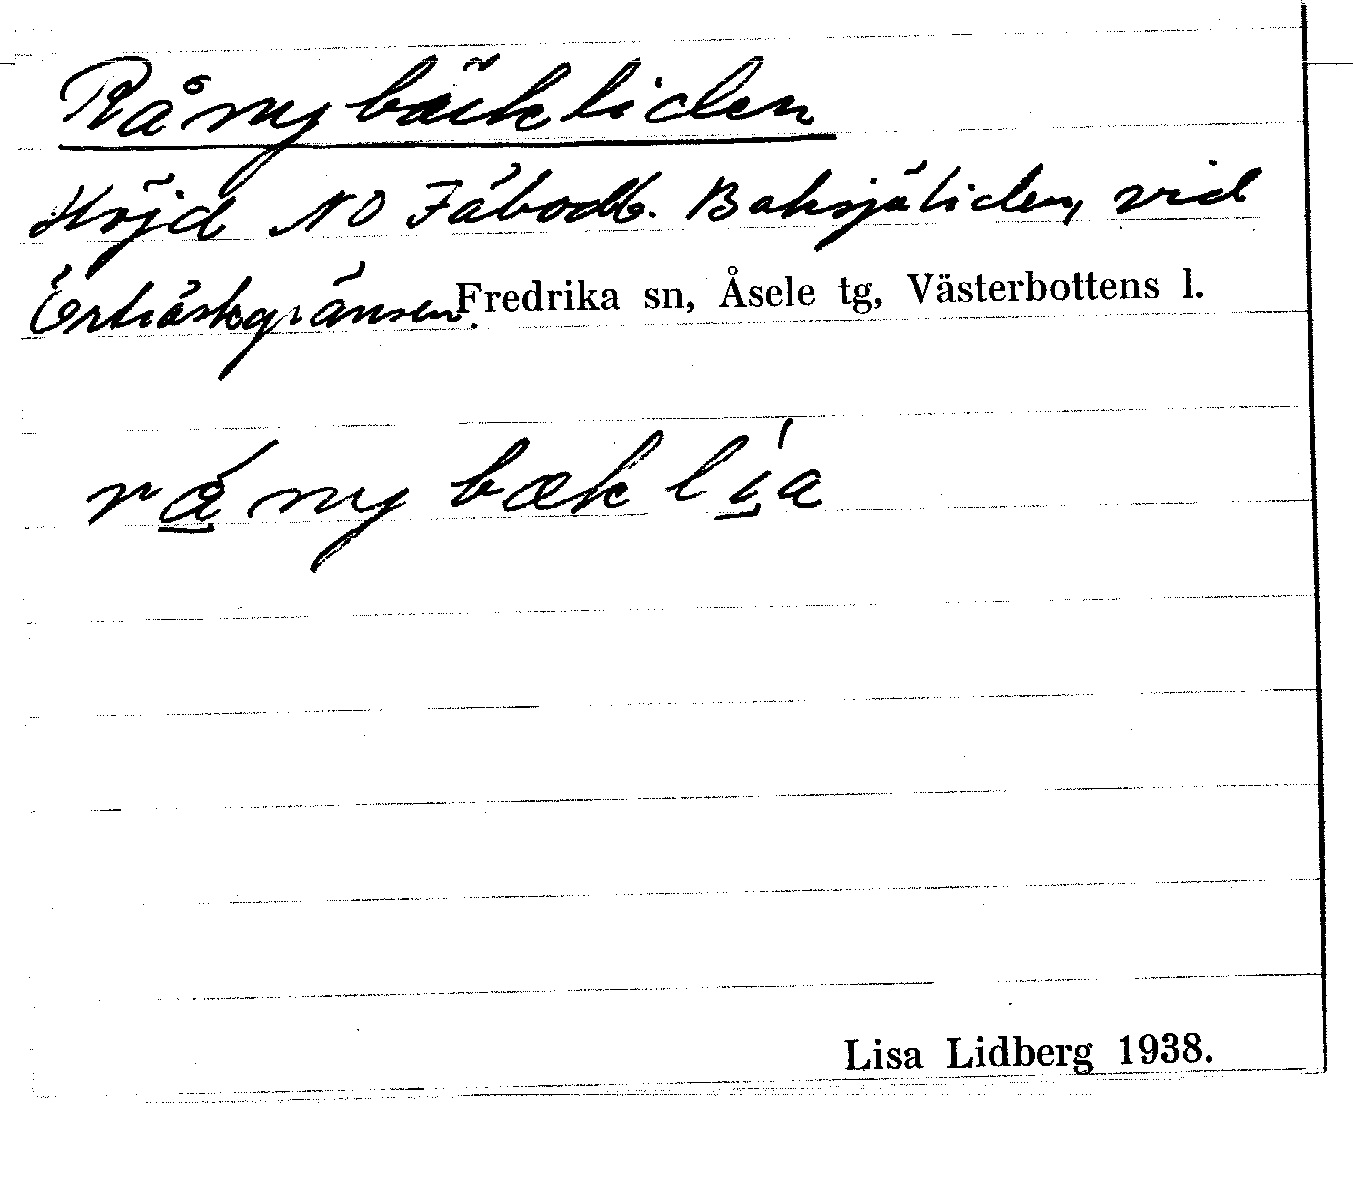 Råmybäckliden
Höjd NO Fäbodb. Baksjöliden, vid
Örträskgränsen. Fredrika sn, Åsele tg, Västerbottens l.
rǻmybæklía
Lisa Lidberg 1938.